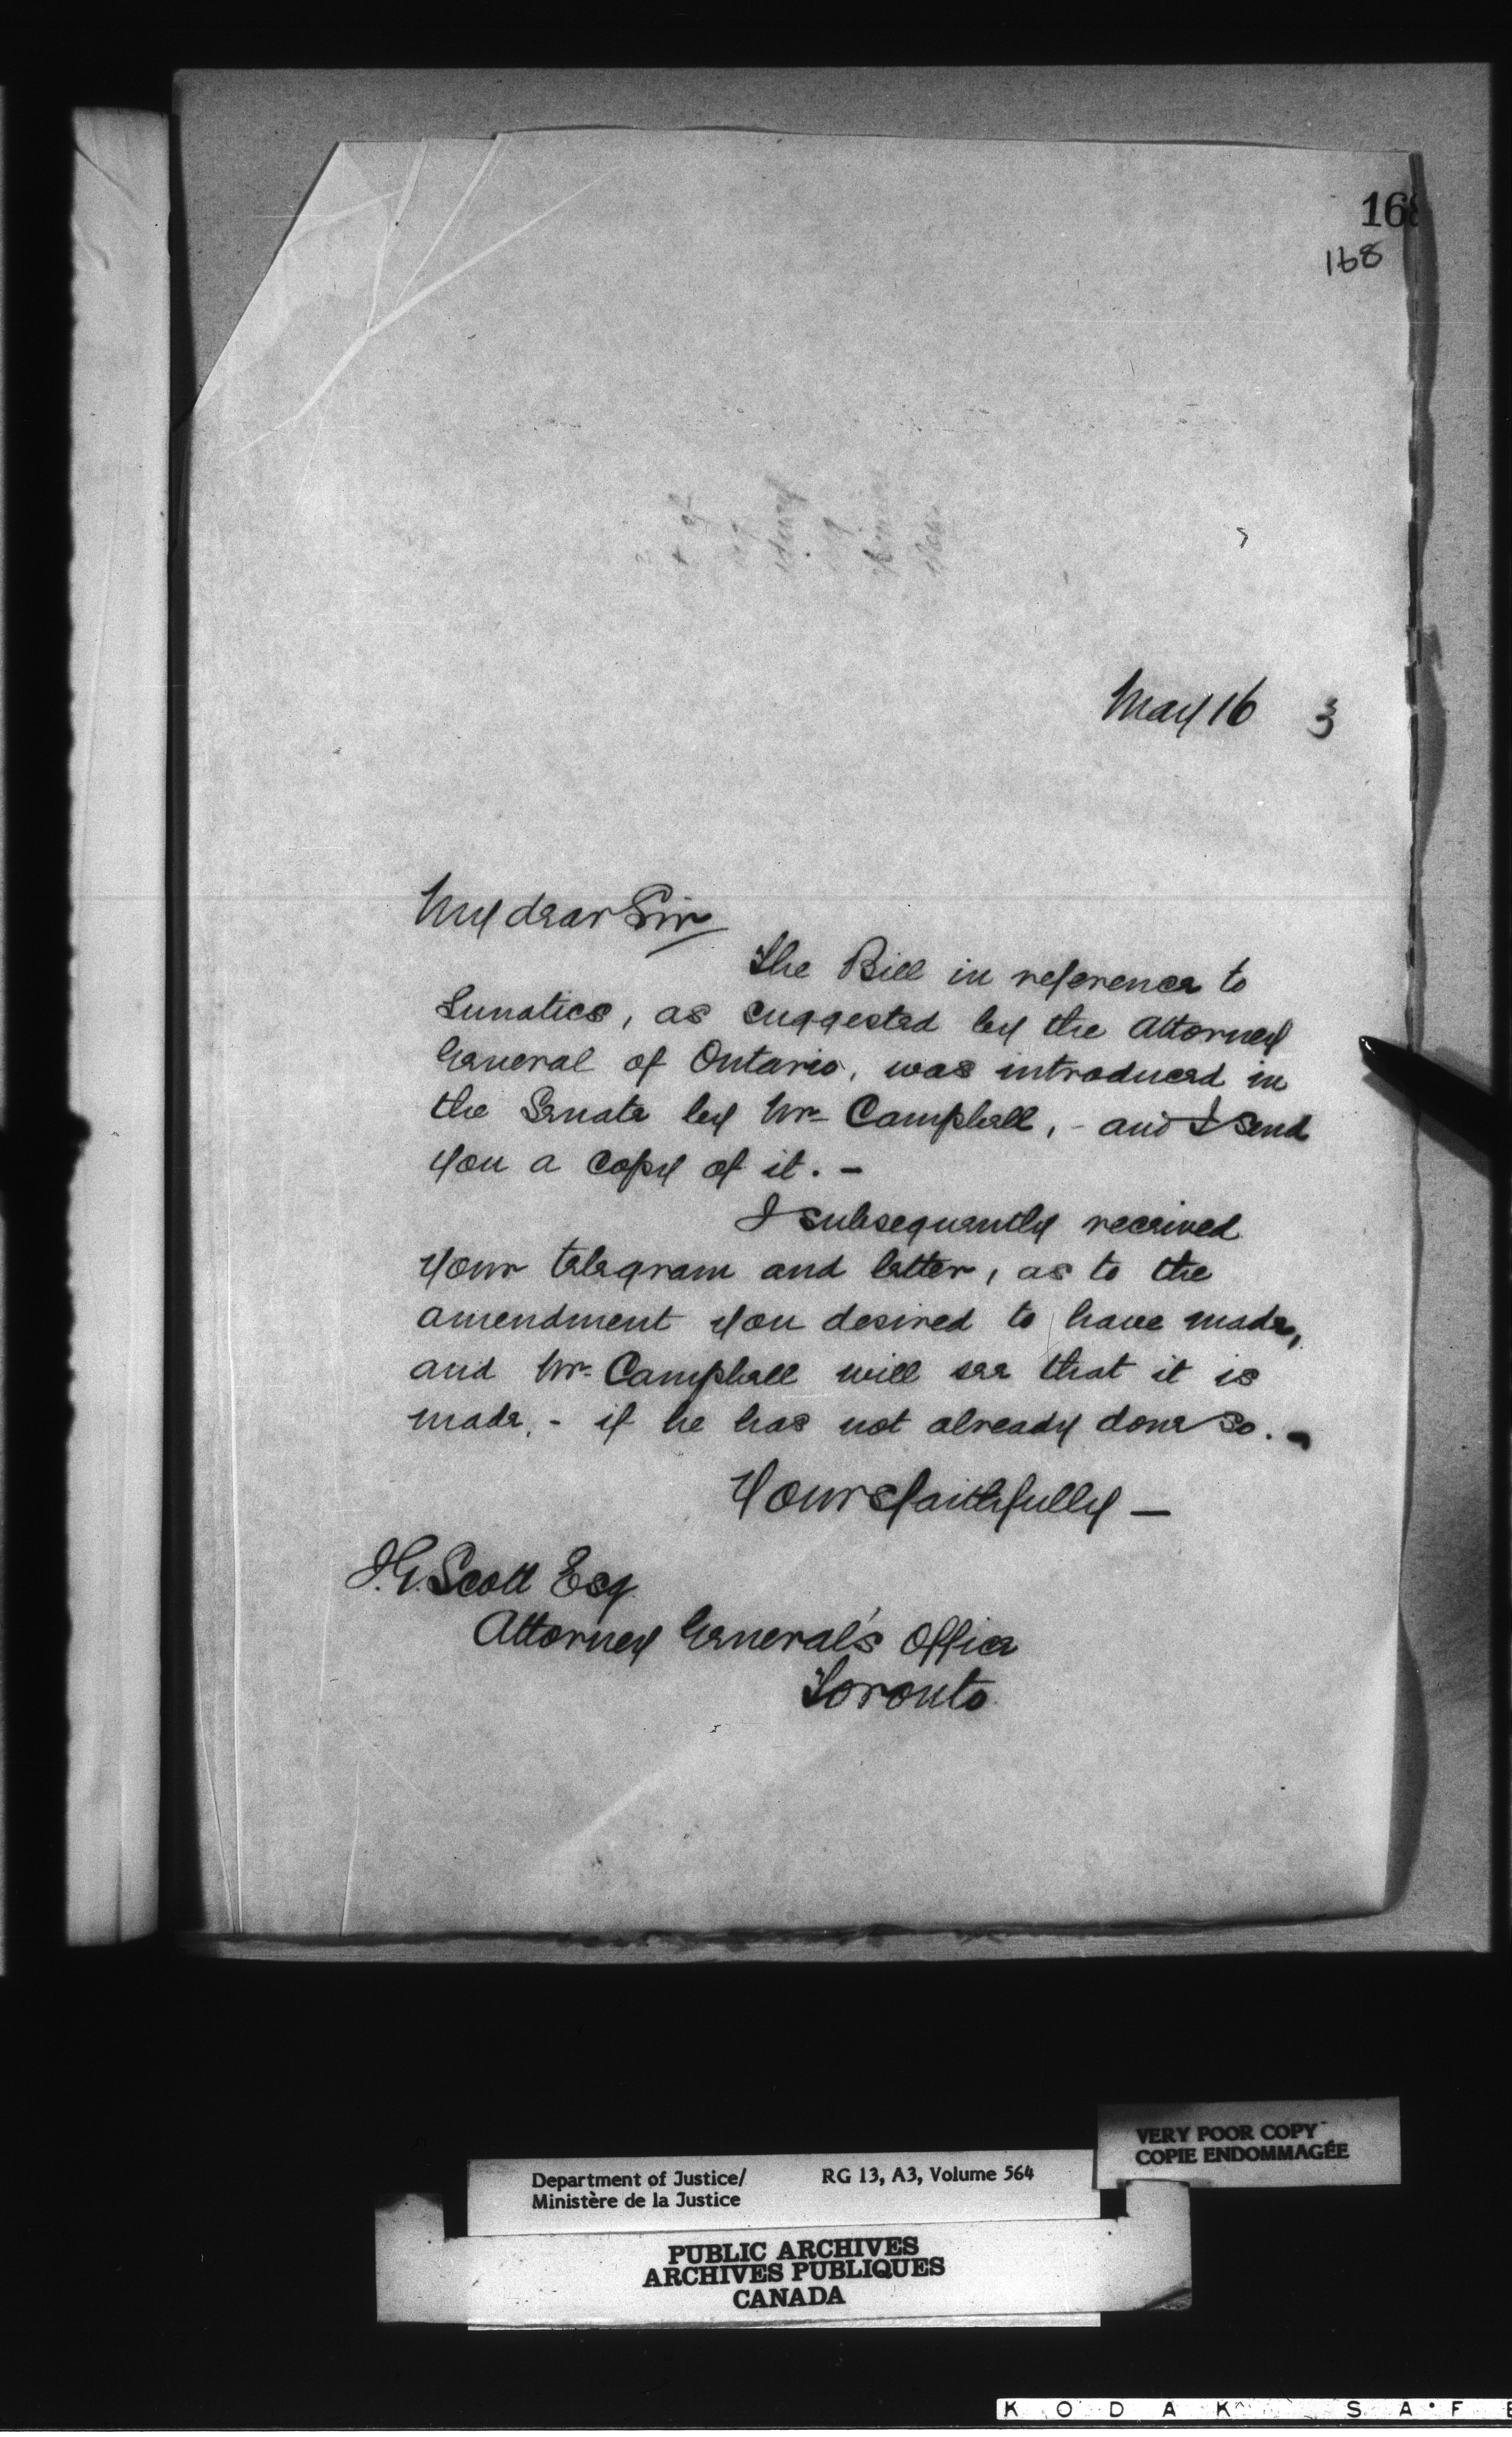 168
168
May 16 3
My dear Sir
The Bill in reference to
Lunatics, as suggested by the Attorney
General of Ontario, was introduced in
the Senate by Mr. Campbell, - and I send
you a copy of it. -
I subsequently received
your telegram and letter, as to the
amendment you desired to have made,
and Mr. Campbell will see that it is
made, - if he has not already done so. -
Yours faithfully -
J.G. Scott Esq
Attorney General's Office
Toronto.
VERY POOR COPY
COPIE ENDOMMAGÉE
Department of Justice/ RG 13, A3, Volume 564
Ministère de la Justice
PUBLIC ARCHIVES
ARCHIVES PUBLIQUES
CANADA
KODAK SAFE